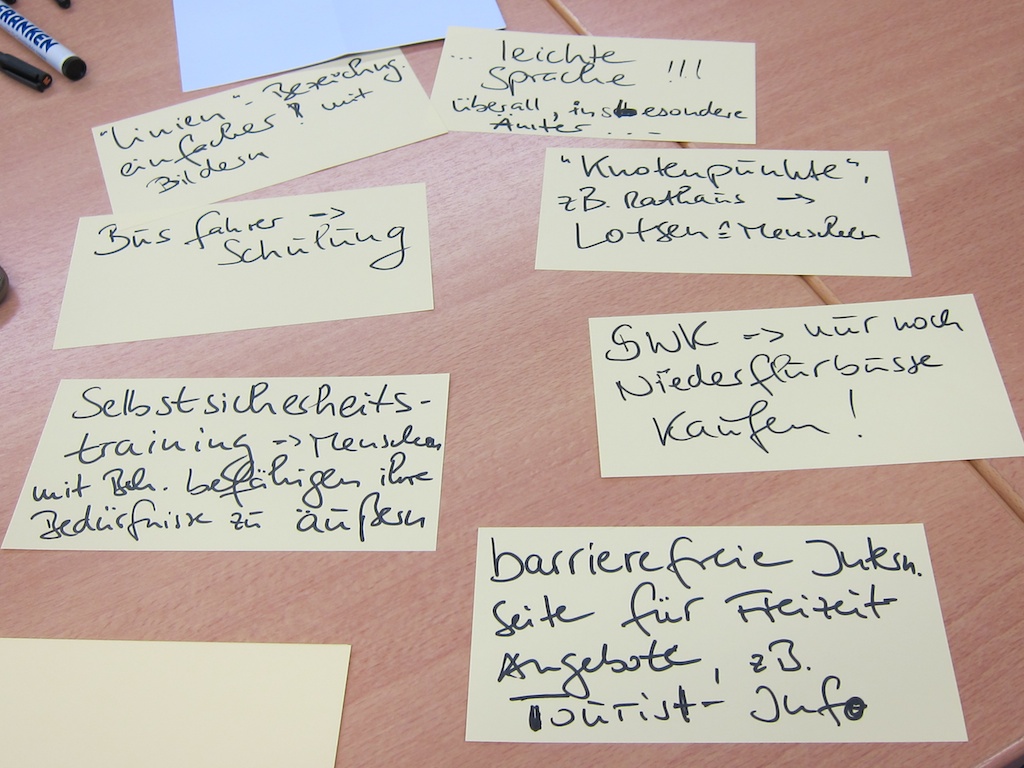 FRANKEN
"Linien"-Bezeichng.
einfacher! mit
Bildern
... leichte
Sprache !!!
überall, insbesondere
Ämter ...
Bus fahrer ->
Schulung
"Knotenpunkte",
zB. Rathaus ->
Lotsen ≙ Menschen
SWK -> nur noch
Niederflurbusse
Kaufen!
Selbstsicherheits-
training -> Menschen
mit Beh. befähigen ihre
Bedürfnisse zu äußern
barrierefreie Intern.
Seite für Freizeit-
Angebote, zB.
Tourist-Info